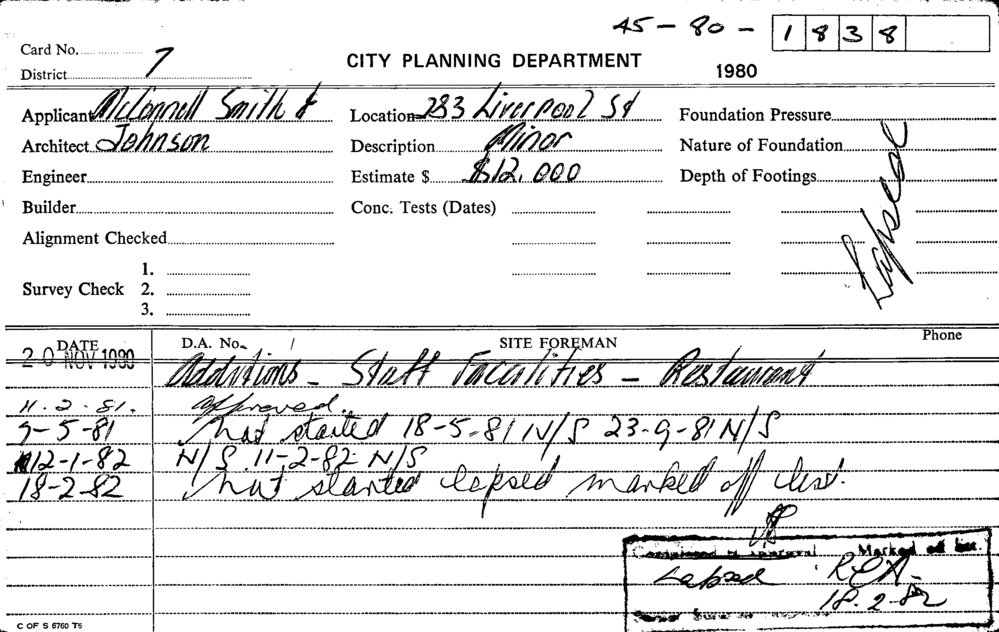 45-80- 1838
Card No.
District 7
CITY PLANNING DEPARTMENT
1980
Applicant McConnell Smith & Location 283 Liverpool St Foundation Pressure
Architect Johnson Description Minor Nature of Foundation
Engineer Estimate $ $12,000 Depth of Footings
Lapsed
Builder Conc. Tests (Dates)
Alignment Checked
1.
Survey Check 2.
3.
DATE D.A. No. SITE FOREMAN Phone
20 NOV 1980 Additions - Staff Facilities - Restaurant
11.2.81. Approved.
7-5-81 not started 18-5-81 N/S 23-9-81 N/S
12-1-82 N/S 11-2-82 N/S
18-2-82 not started lapsed marked off list.
Completed to approval Marked off list.
Lapsed
18.2-82
C OF S 6760 T6